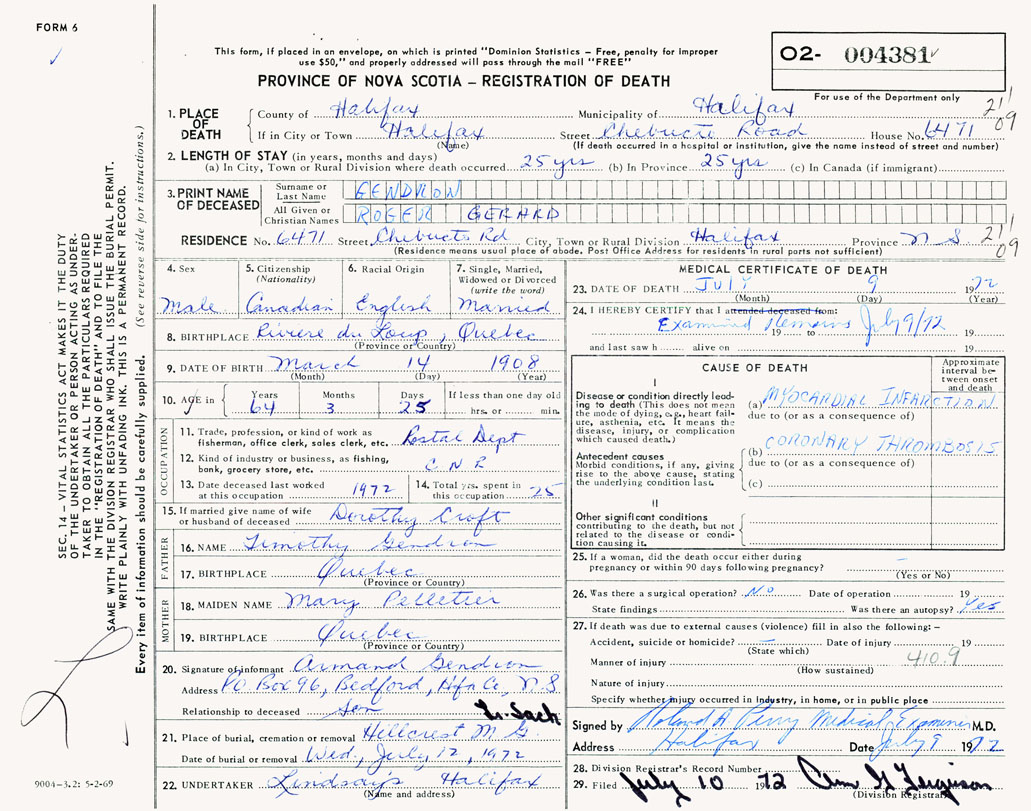 FORM 6
This form, if placed in an envelope, on which is printed "Dominion Statistics – Free, penalty for improper
use $50," and properly addressed will pass through the mail "FREE"
PROVINCE OF NOVA SCOTIA – REGISTRATION OF DEATH
02- 004381
For use of the Department only
211
09
1. PLACE OF DEATH
County of Halifax Municipality of Halifax
If in City or Town Halifax Street Chebucto Road House No. 6471
(Name) (If death occurred in a hospital or institution, give the name instead of street and number)
2. LENGTH OF STAY (in years, months and days)
(a) In City, Town or Rural Division where death occurred 25 yrs (b) In Province 25 yrs (c) In Canada (if immigrant)
3. PRINT NAME OF DECEASED
Surname or Last Name GENDRON
All Given or Christian Names ROGER GERARD
RESIDENCE No. 6471 Street Chebucto Rd City, Town or Rural Division Halifax Province N S
211
09
(Residence means usual place of abode. Post Office Address for residents in rural parts not sufficient)
4. Sex
Male
5. Citizenship
(Nationality)
Canadian
6. Racial Origin
English
7. Single, Married,
Widowed or Divorced
(write the word)
Married
8. BIRTHPLACE Riviere du Loup, Quebec
(Province or Country)
9. DATE OF BIRTH March 14 1908
(Month) (Day) (Year)
10. AGE in Years Months Days If less than one day old
64 3 25 hrs. or min.
OCCUPATION
11. Trade, profession, or kind of work as
fisherman, office clerk, sales clerk, etc. Postal Dept
12. Kind of industry or business, as fishing,
bank, grocery store, etc. C N R
13. Date deceased last worked
at this occupation 1972
14. Total yrs. spent in
this occupation 25
15. If married give name of wife
or husband of deceased Dorothy Croft
FATHER
16. NAME Timothy Gendron
17. BIRTHPLACE Quebec
(Province or Country)
MOTHER
18. MAIDEN NAME Mary Pelletier
19. BIRTHPLACE Quebec
(Province or Country)
20. Signature of informant Armand Gendron
Address PO Box 96, Bedford, Hfx Co, N S
Relationship to deceased Son
21. Place of burial, cremation or removal Hillcrest M G
L. Sack
Date of burial or removal Wed, July 12, 1972
22. UNDERTAKER Lindsay's Halifax
(Name and address)
MEDICAL CERTIFICATE OF DEATH
23. DATE OF DEATH JULY 9 1972
(Month) (Day) (Year)
24. I HEREBY CERTIFY that I attended deceased from:
Examined Remains July 9/72
19 to 19
and last saw h alive on 19
CAUSE OF DEATH
Approximate
interval be-
tween onset
and death
I
Disease or condition directly lead-
ing to death (This does not mean
the mode of dying, e.g., heart fail-
ure, asthenia, etc. It means the
disease, injury, or complication
which caused death.)
(a) MYOCARDIAL INFARCTION
due to (or as a consequence of)
Antecedent causes
Morbid conditions, if any, giving
rise to the above cause, stating
the underlying condition last.
(b) CORONARY THROMBOSIS
due to (or as a consequence of)
(c)
II
Other significant conditions
contributing to the death, but not
related to the disease or condi-
tion causing it.
25. If a woman, did the death occur either during
pregnancy or within 90 days following pregnancy? –
(Yes or No)
26. Was there a surgical operation? No Date of operation 19
State findings Was there an autopsy? Yes
27. If death was due to external causes (violence) fill in also the following: –
Accident, suicide or homicide? – Date of injury 19
(State which)
Manner of injury 410.9
(How sustained)
Nature of injury
Specify whether injury occurred in Industry, in home, or in public place
Signed by Roland A Perry Medical Examiner M.D.
Address Halifax Date July 9 1972
28. Division Registrar's Record Number
29. Filed July 10 1972
(Division Registrar)
SEC. 14 – VITAL STATISTICS ACT MAKES IT THE DUTY
OF THE UNDERTAKER OR PERSON ACTING AS UNDER-
TAKER TO OBTAIN ALL THE PARTICULARS REQUIRED
IN THE "REGISTRATION OF DEATH" AND TO FILE THE
SAME WITH THE DIVISION REGISTRAR WHO SHALL ISSUE THE BURIAL PERMIT.
WRITE PLAINLY WITH UNFADING INK. THIS IS A PERMANENT RECORD.
Every item of information should be carefully supplied. (See reverse side for instructions.)
9004-3.2: 5-2-69